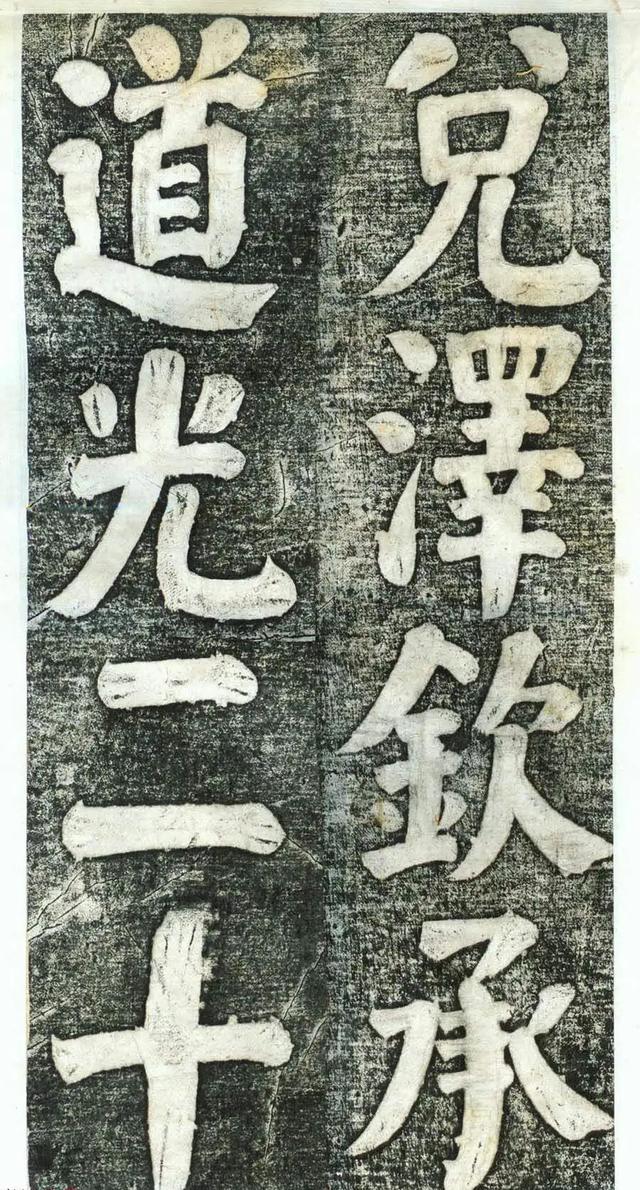 兌澤欽承
道光二十